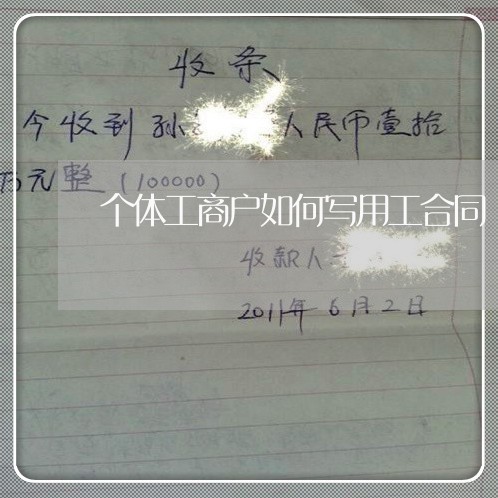 收条
今收到孙 人民币壹拾
万元整(100000)
个体工商户如何写用工合同
收款人
2011年6月2日